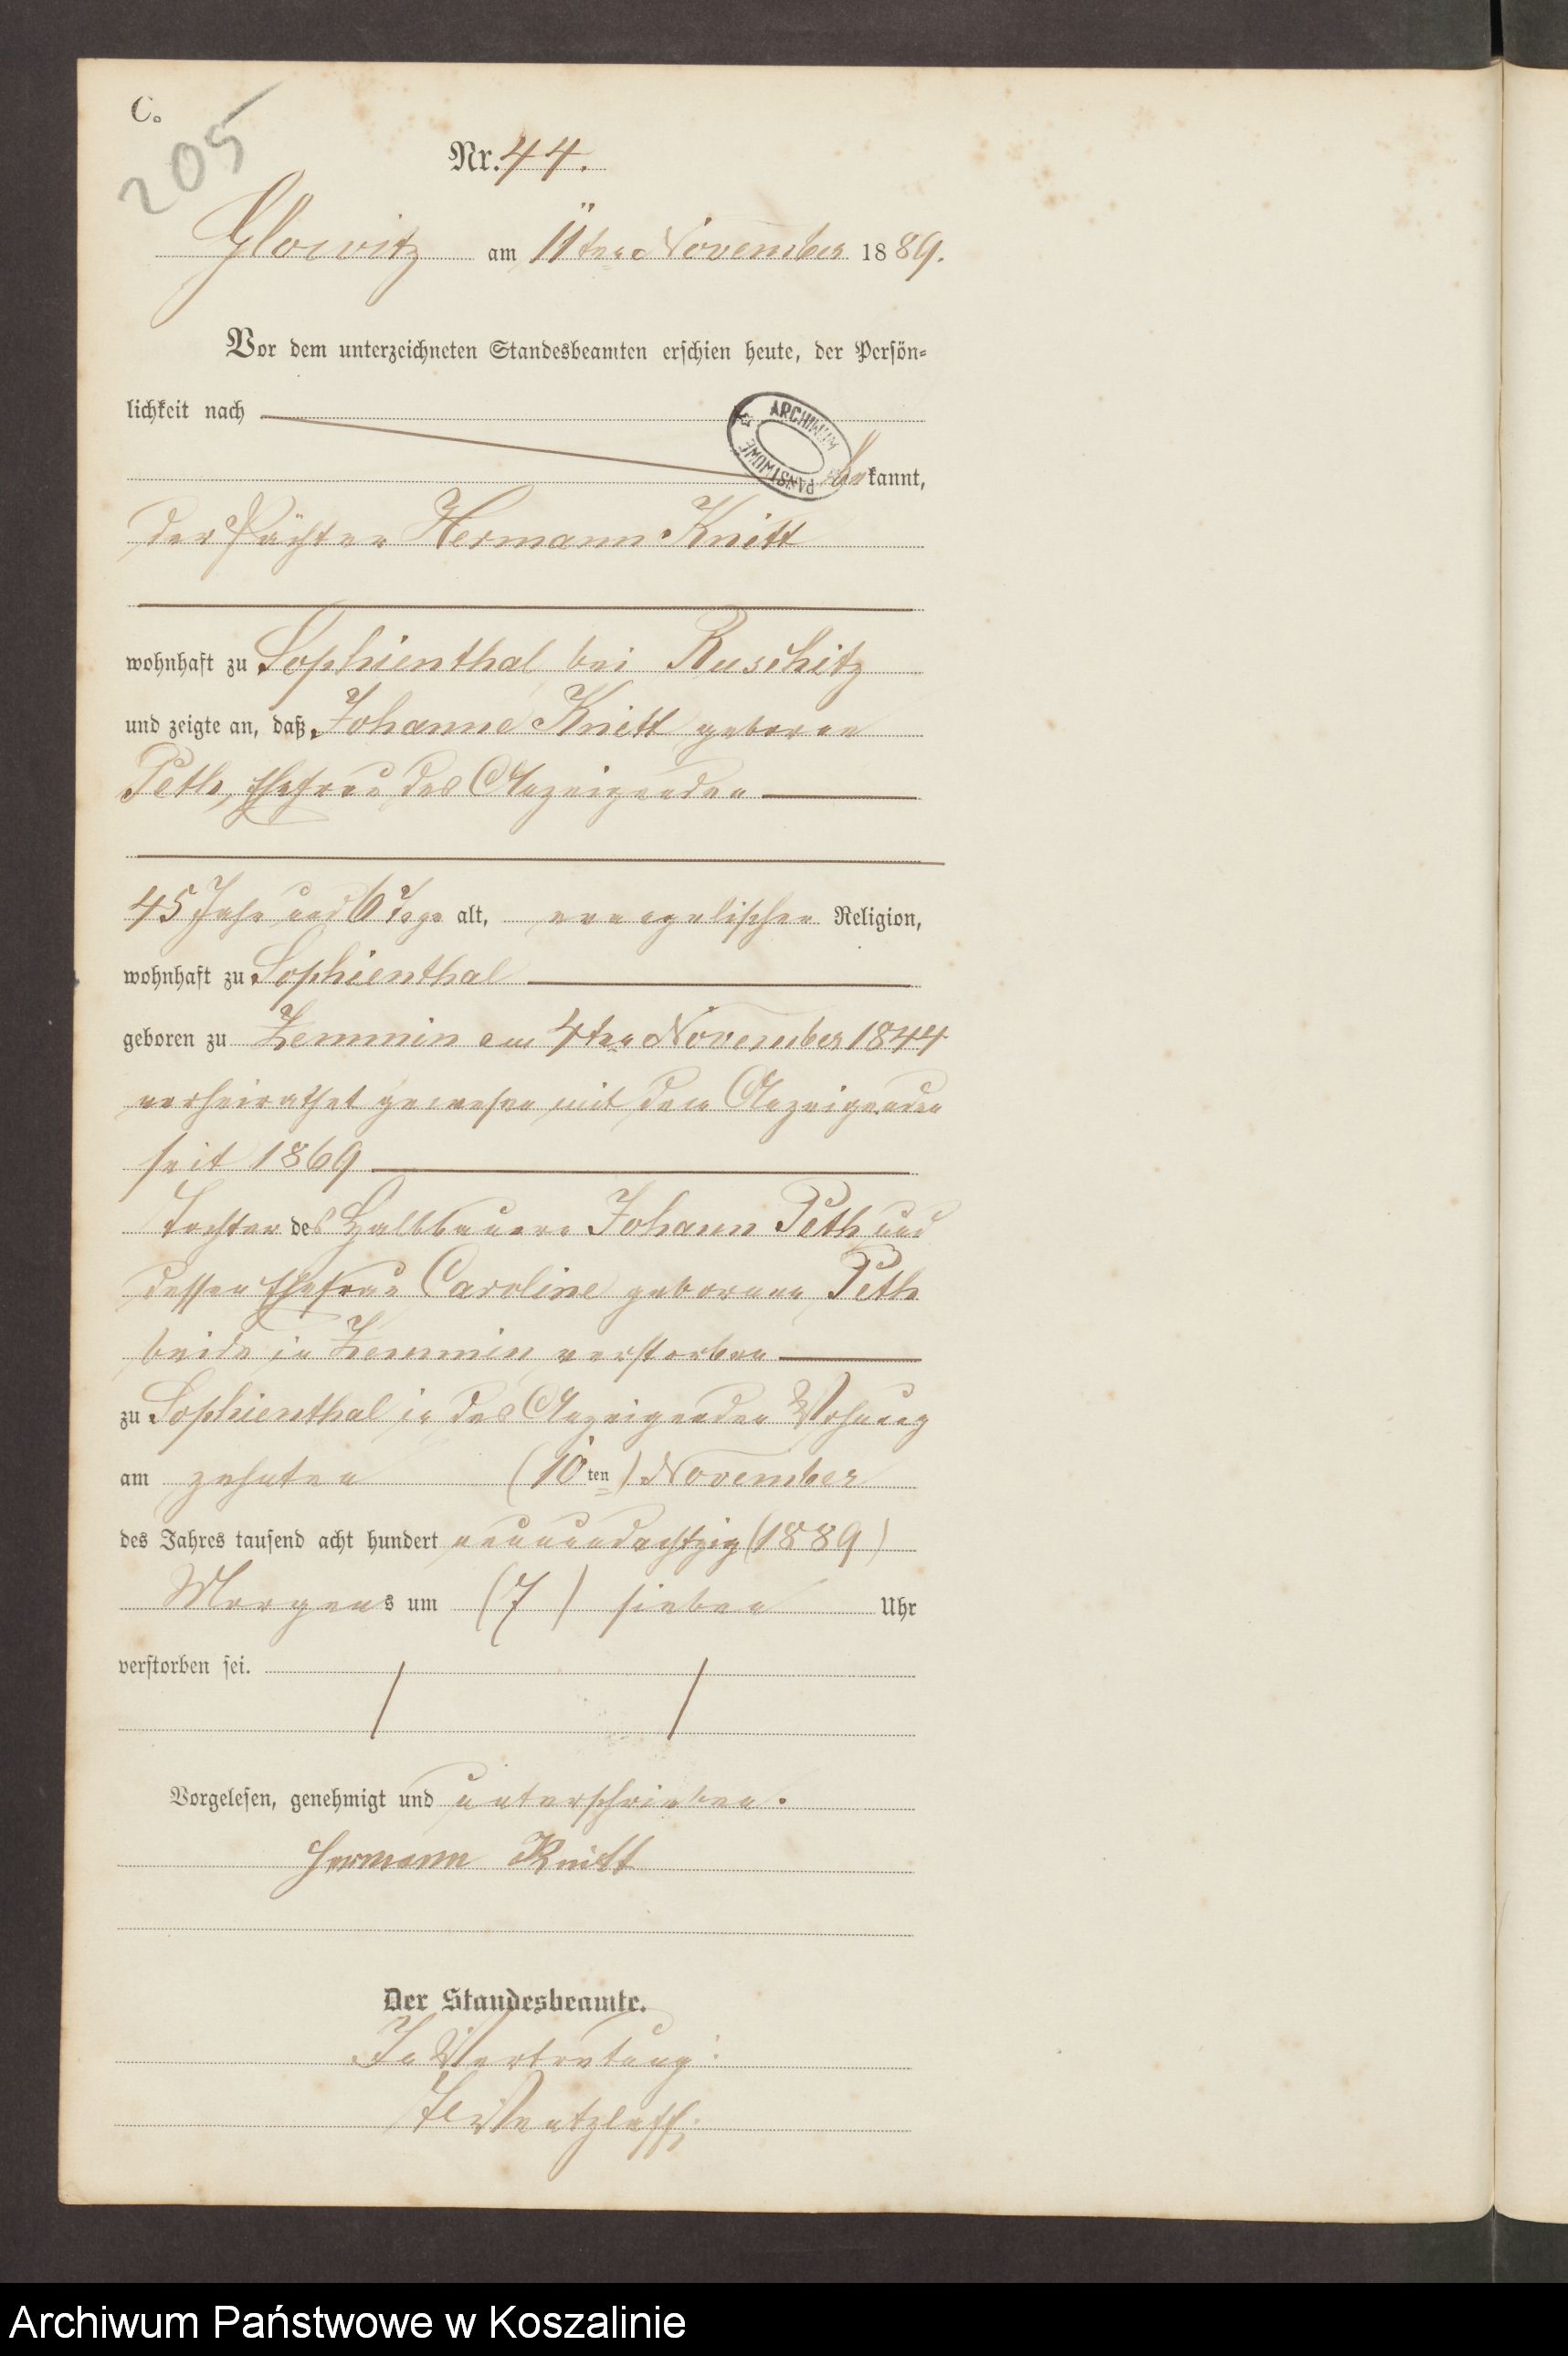 C.
205
Nr. 44.
Glowitz am 11ten November 1889.
Vor dem unterzeichneten Standesbeamten erschien heute, der Persön-
lichkeit nach
ARCHIWUM PAŃSTWOWE
bekannt,
der Pächter Hermann Knitt
wohnhaft zu Sophienthal bei Ruschitz
und zeigte an, daß Johanne Knitt geborene
Peth, Ehefrau des Anzeigenden
45 Jahr und 6 Tage alt, evangelischer Religion,
wohnhaft zu Sophienthal
geboren zu Zemmin am 4ten November 1844
verheirathet gewesen mit dem Anzeigenden
seit 1869
Tochter des Halbbauern Johann Peth und
dessen Ehefrau Caroline geborene Peth
beide in Zemmin verstorben
zu Sophienthal in des Anzeigenden Wohnung
am zehnten (10ten) November
des Jahres tausend acht hundert neunundachtzig (1889)
Morgens um (7) sieben Uhr
verstorben sei.
Vorgelesen, genehmigt und unterschrieben.
Hermann Knitt
Der Standesbeamte.
In Vertretung: